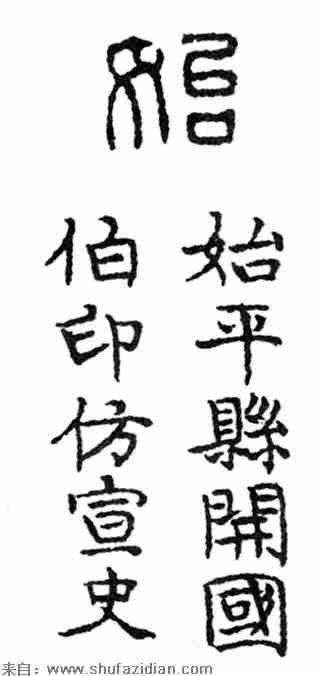 始
始平縣開國
伯印仿宣史
来自：www.shufazidian.com